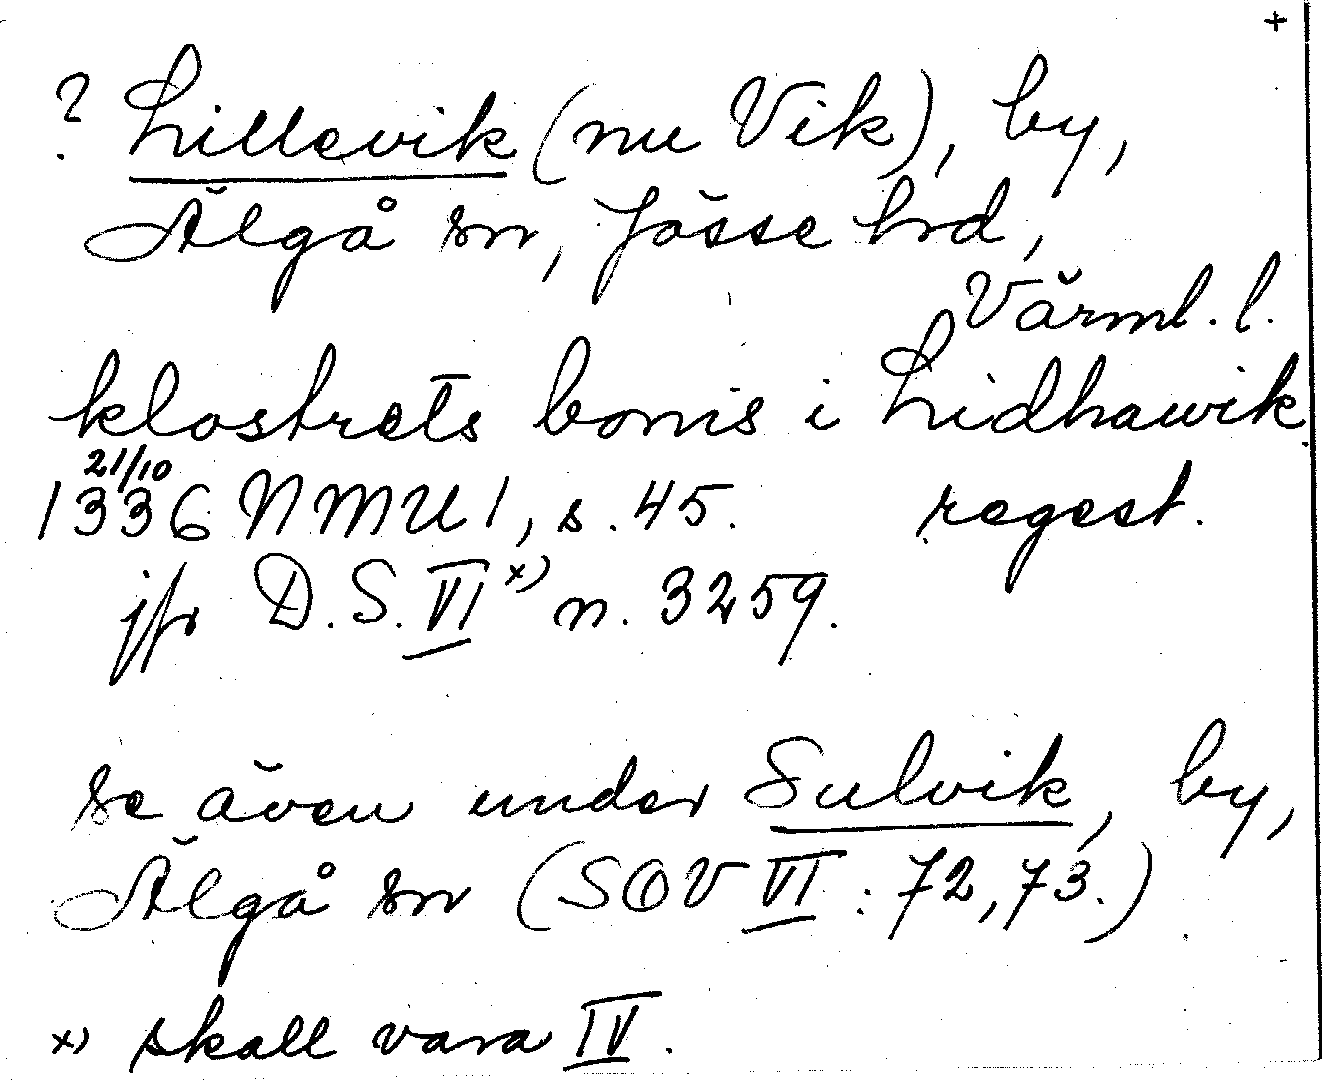 +
? Lillevik (nu Vik), by,
Älgå sn, Jösse hrd,
Värml. l.
klostrets bonis i Lidhawik
21/10
1336 NMU 1, s. 45. regest.
jfr D.S. VI x) n. 3259.
se även under Sulvik, by,
Älgå sn (SOV VI : 72, 73.)
x) skall vara IV.